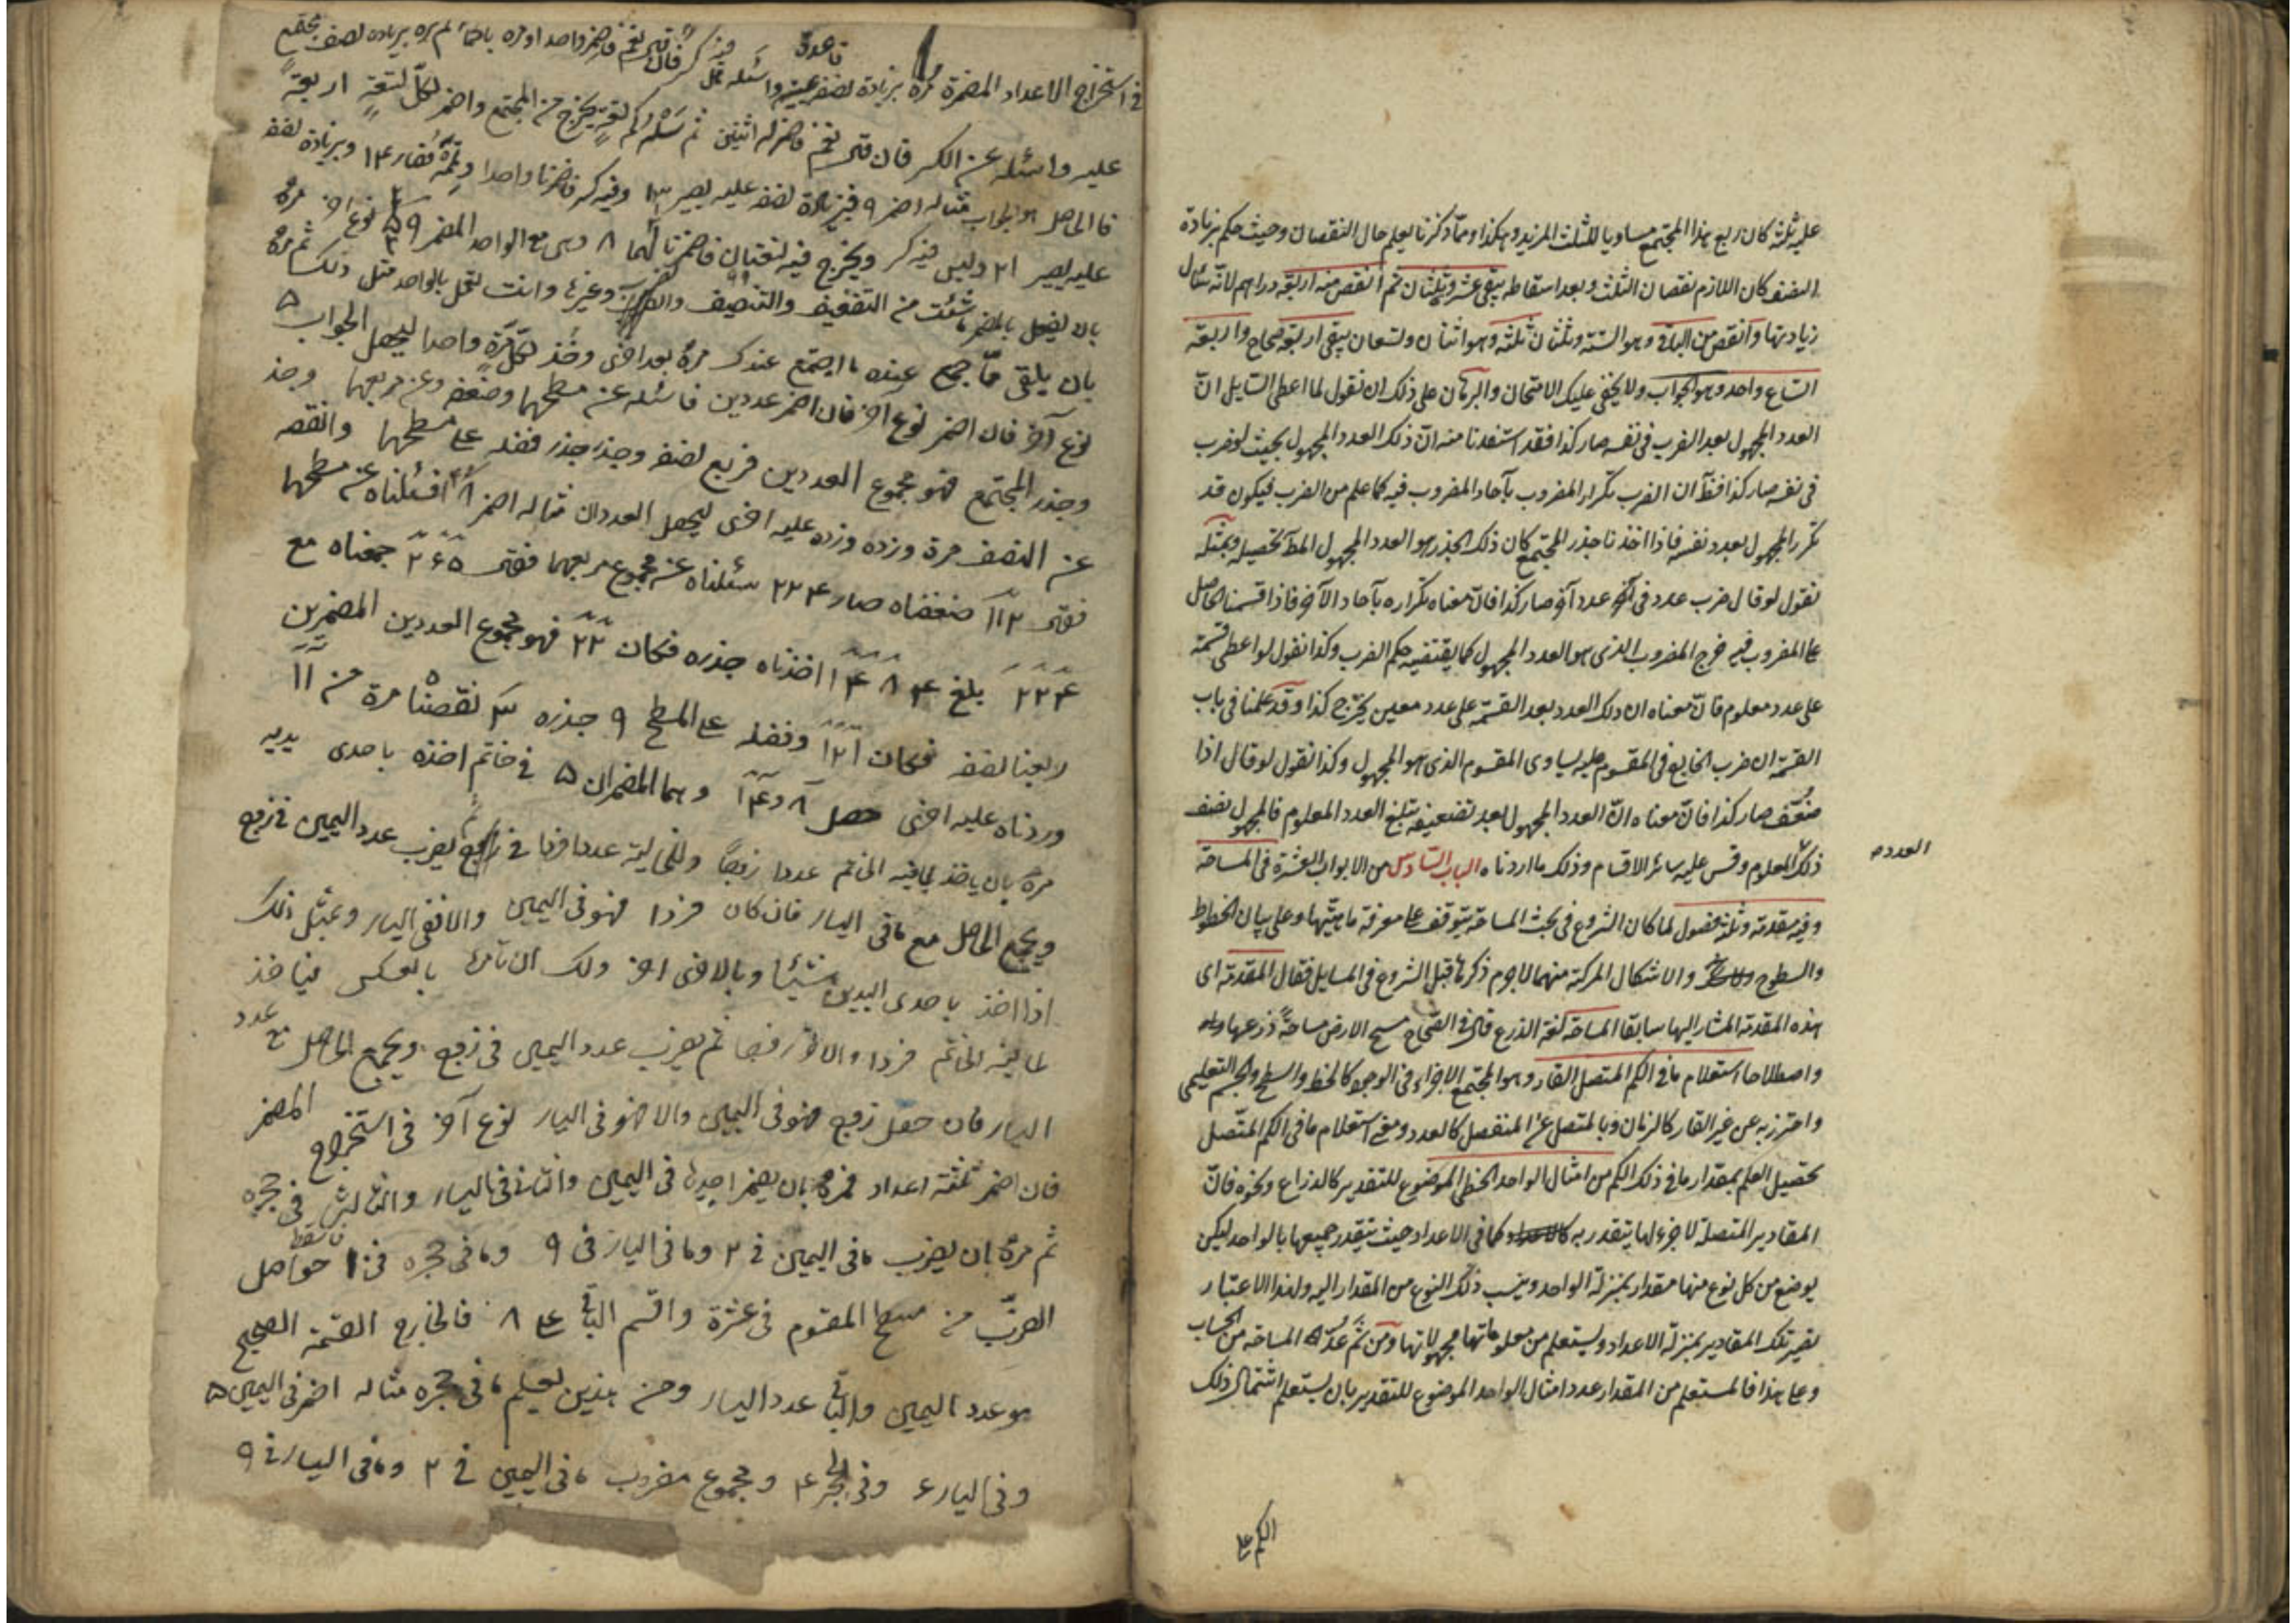 عليه ثلثه كان ربع هذا المجتمع مساويا للثلث المزيد وهكذا ومما ذكرنا يعلم حال النقصان وحيث حكم بزيادة
النصف كان اللازم نقصان الثلث وبعد اسقاطه يبقى عشر وثلثان ثم انقص منه اربعة دراهم لانه سأل
زيادتها وانقص من الباقي وهو الستة وثلثان ثلثه وهو اثنان وتسعان يبقى اربعة صحاح واربعة
اتساع واحد وهو الجواب ولا يخفى عليك الامتحان والبرهان على ذلك ان نقول لما اعطى السايل ان
العدد المجهول بعد الضرب في نفسه صار كذا فقد استفدنا منه ان ذلك العدد المجهول بحيث لو ضرب
في نفسه صار كذا فظ ان الضرب تكرار المضروب بآحاد المضروب فيه كما علم من الضرب فيكون قد
تكرر المجهول بعدد نفسه فاذا اخذنا جذر المجتمع كان ذلك الجذر هو العدد المجهول المط تحصيله وبمثله
نقول لو قال ضرب عدد في عدد آخر صار كذا فان معناه تكراره بآحاد الآخر فاذا قسمنا الحاصل
على المضروب فيه خرج المضروب الذي هو العدد المجهول كما يقتضيه حكم الضرب وكذا نقول لو اعطى قسمة
على عدد معلوم فان معناه ان ذلك العدد بعد القسمة على عدد معين يخرج كذا وقد علمنا في باب
القسمة ان ضرب الخارج في المقسوم عليه يساوي المقسوم الذي هو المجهول وكذا نقول لو قال اذا
ضُعّف صار كذا فان معناه ان العدد المجهول بعد تضعيفه يبلغ العدد المعلوم فالمجهول نصف
ذلك المعلوم وقس عليه سائر الاقسام وذلك ما اردناه الباب السادس من الابواب العشرة في المساحة
العدد
وفيه مقدمة وثلثة فصول لما كان الشروع في بحث المساحة يتوقف على معرفة ماهيتها وعلى بيان الخطوط
والسطوح والاشكال المركبة منهما لاجرم ذكرها قبل الشروع في المسايل فقال المقدمة اى
هذه المقدمة المشار اليها سابقا المساحة لغة الذرع قال في الصحاح مسح الارض مساحة ذرعها
واصطلاحا استعلام ما في الكم المتصل القار وهو المجتمع الاجزاء في الوجود كالخط والسطح والجسم التعليمي
واحترز به عن غير القار كالزمان وبالمتصل عن المنفصل كالعدد ومعنى استعلام ما في الكم المتصل
تحصيل العلم بمقدار ما في ذلك الكم من امثال الواحد الخطي الموضوع للتقدير كالذراع ونحوه فان
المقادير المتصلة لا جزء لها يتقدر به كما في الاعداد حيث يتقدر جميعها بالواحد لكن
يوضع من كل نوع منها مقدار بمنزلة الواحد وينسب ذلك النوع من المقدار اليه ولهذا الاعتبار
تصير تلك المقادير بمنزلة الاعداد ويستعلم من معلوماتها مجهولاتها ومن ثم عدت المساحة من الحساب
وعلى هذا فالمستعلم من المقدار عدد امثال الواحد الموضوع للتقدير بان يستعلم اشتمال ذلك
الكم على
قاعدة
في استخراج الاعداد المضمرة مره بزيادة نصفه عليه واسئله هل فيه كسر فان قال نعم فاضمر واحدا
عليه واسئله عن الكسر فان قال نعم فاضمر له اثنين ثم سله كم تسعة يخرج من المجتمع واضمر لكل تسعة اربعة
فالحاصل هو الجواب مثاله اضمر ٩ فبزيادة نصفه عليه يصير ١٣ وفيه كسر فاضمرنا واحدا وتممه فصار ١٤ وبزيادة نصفه
عليه يصير ٢١ وليس فيه كسر ويخرج فيه تسعتان فاضمرنا لهما ٨ وهى مع الواحد المضمر ٩ نوع آخر مره
بان يفعل بالمضمر ما شئت من التضعيف والتنصيف والضرب وغيرها وانت تفعل بالواحد مثل ذلك ثم مره
بان يلقى مما جمع عنده ما اجتمع عندك مرة بعد اخرى وخذ لكل مرة واحدا ليحصل الجواب
نوع آخر فان اضمر عددين فاسئله عن مسطحهما وضعفه وعن مربعهما وخذ
وجذر المجتمع فهو مجموع العددين فربع نصفه وجذر جذر فضله على مسطحهما وانقصه
عن النصف مرة وزده عليه اخرى ليحصل العددان مثاله اضمر فسئلناه عن مسطحهما
فقال ١١٢ ضعفناه صار ٢٢٤ سئلناه عن مجموع مربعهما فقال ٢٦٠ جمعناه مع
٢٢٤ بلغ ٤٨٤ اخذناه جذره فكان ٢٢ فهو مجموع العددين المضمرين
ربعنا نصفه فكان ١٢١ وفضله على المسطح ٩ جذره ٣ نقصناه مرة من ١١
وزدناه عليه اخرى حصل ٨ و ١٤ وهما المضمران في خاتم اخذه باحدى يديه
مره بان ياخذ لما فيه الخاتم عددا زوجا وللخالية عددا فردا ثم يضرب عدد اليمين في زوج
ويجمع الحاصل مع ما في اليسار فان كان فردا فهو في اليمين والا ففي اليسار وبمثل ذلك
اذا اخذ باحدى اليدين شيئا وبالاخرى آخر ولك ان تأمره بالعكس فياخذ
لما فيه الخاتم فردا والاخرى زوجا ثم يضرب عدد اليمين في زوج ويجمع الحاصل مع عدد
اليسار فان حصل زوج فهو في اليمين والا فهو في اليسار نوع آخر في استخراج المضمر
فان اضمر ثلثة اعداد فمره بان يضمر احدها في اليمين والثاني في اليسار والثالث في حجره
ثم مره بان يضرب ما في اليمين في ٢ وما في اليسار في ٩ وما في حجره في ١٠ فاسقط حواصل
الضرب من مسطح المقسوم في عشرة واقسم الباقي على ٨ فالخارج القسمة الصحيح
هو عدد اليمين والباقي عدد اليسار ومن هذين تعلم ما في حجره مثاله اضمر في اليمين ٥
وفي اليسار ٤ وفي الحجر ومجموع مضروب ما في اليمين في ٢ وما في اليسار في ٩